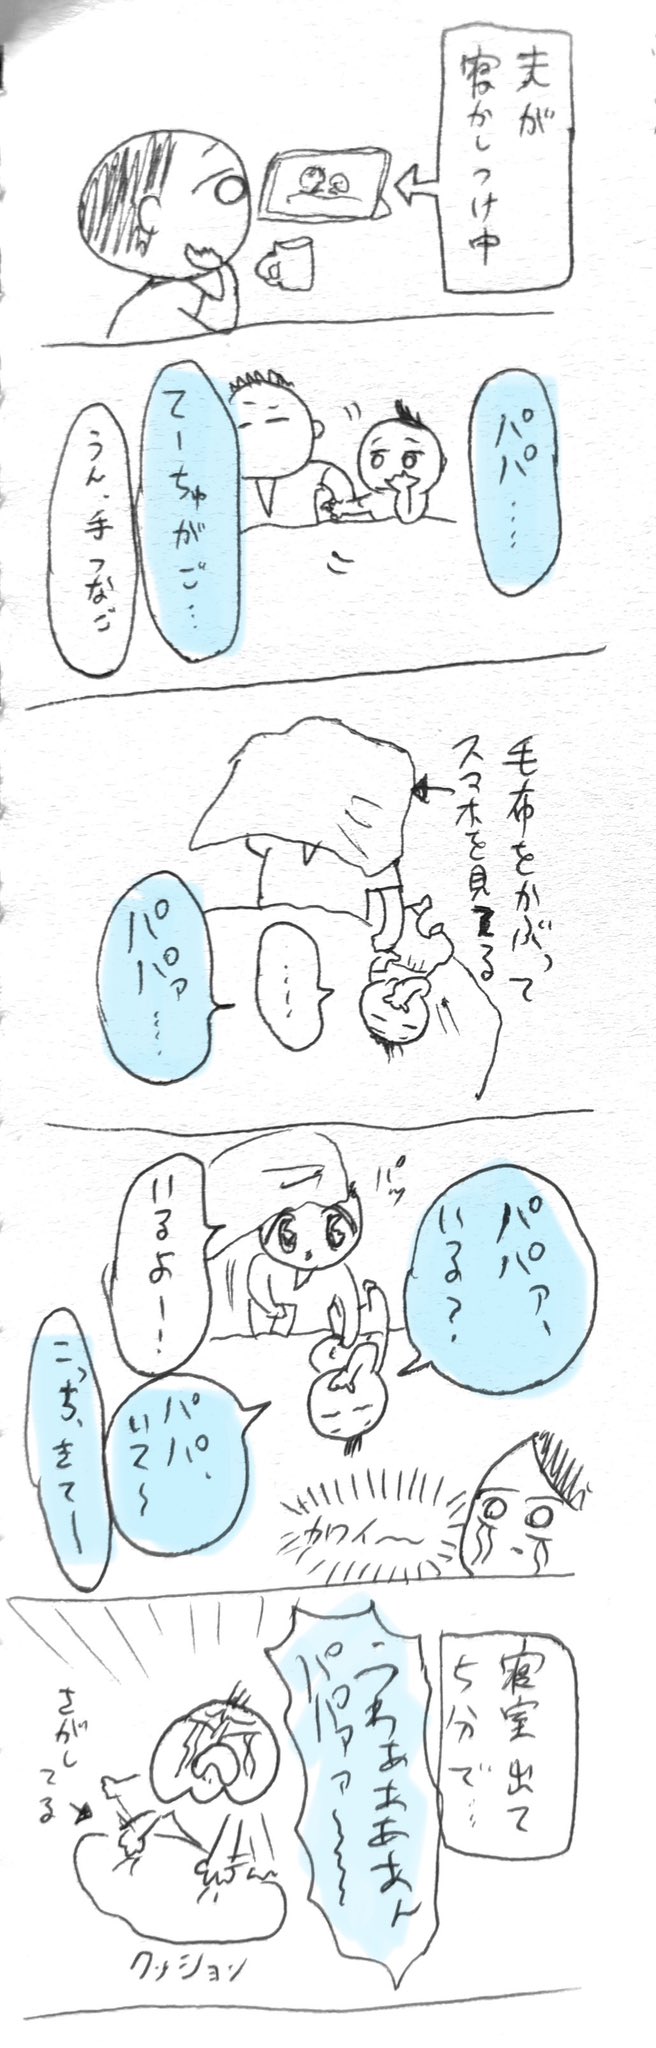 夫が
寝かしつけ中
パパ……
てーちゅがご…
うん、手つなご
毛布をかぶって
スマホを見てる
……
パパァ……
パパァ、
いる?
パッ
いるよー!
パパ、
いて〜
こっち、きて〜
カワイ〜
寝室出て
5分で…
うわぁぁああん
パパァァ〜〜〜
さがし
てる
クッション